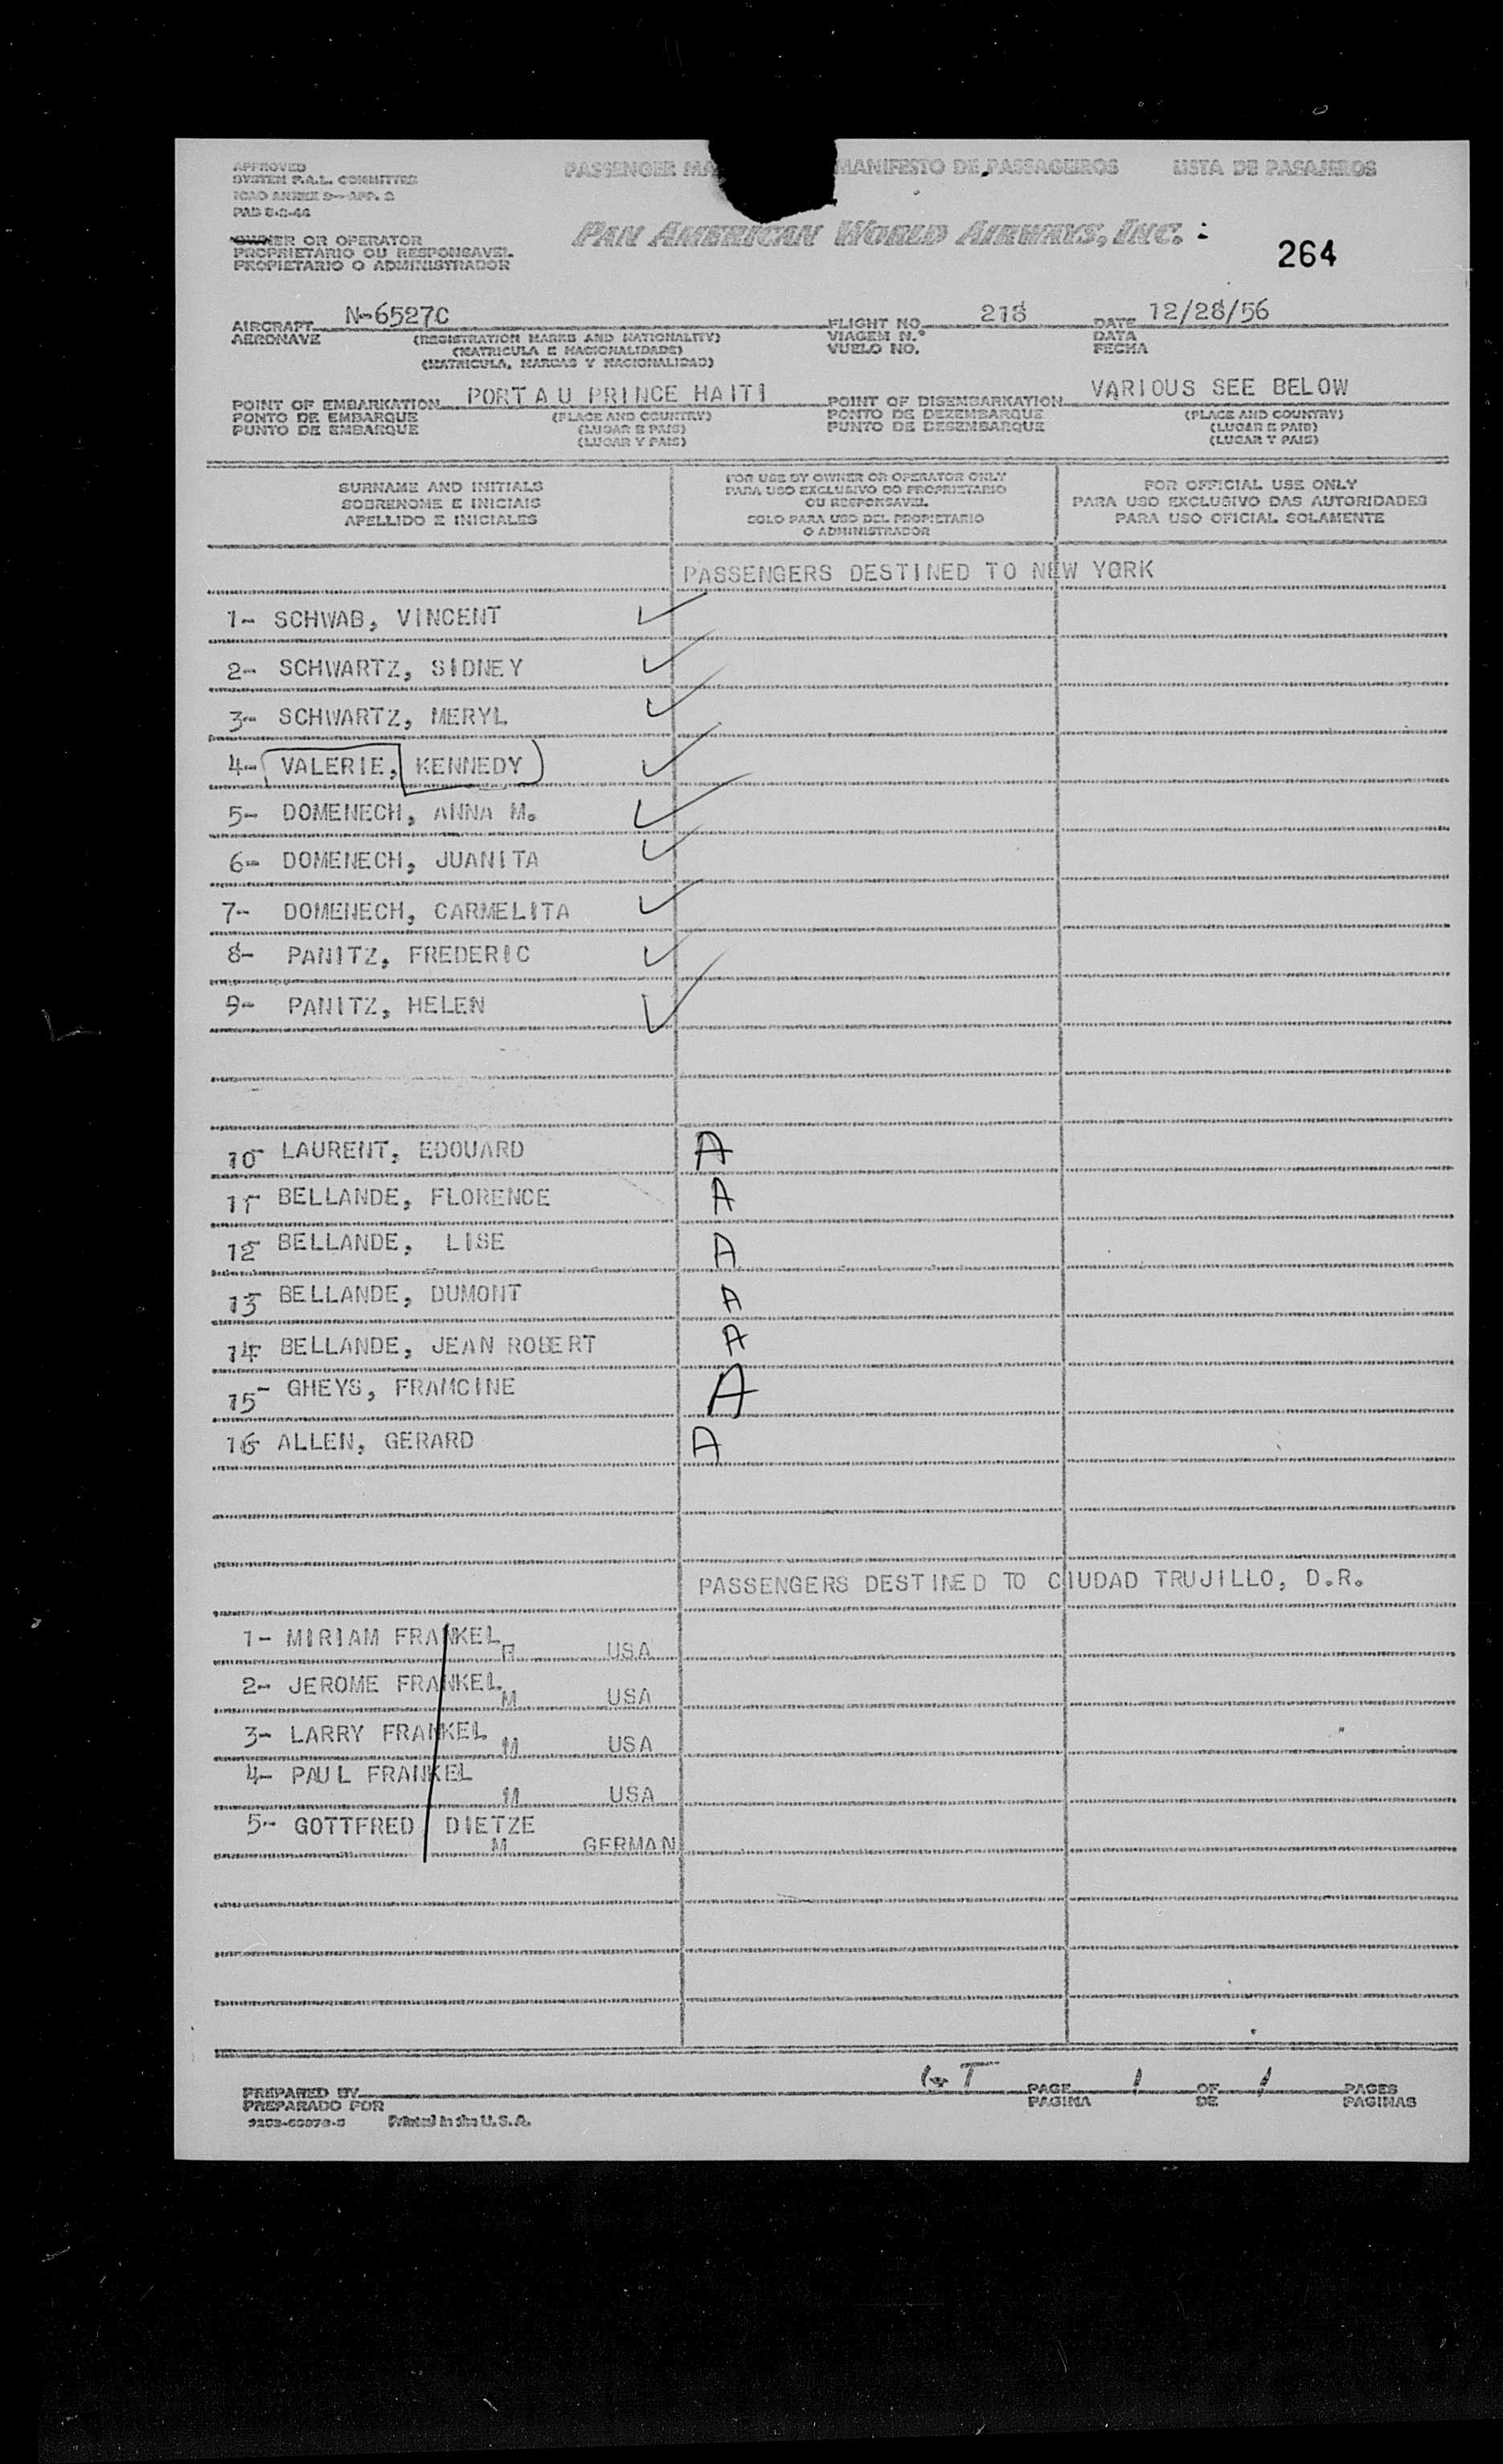 APPROVED
SYSTEM F.A.L. COMMITTEE
ICAO ANNEX 9—APP. 2
PAD 5-2-46
PASSENGER MA MANIFESTO DE PASSAGEIROS LISTA DE PASAJEROS
PAN AMERICAN WORLD AIRWAYS, INC.
264
OWNER OR OPERATOR
PROPRIETARIO OU RESPONSAVEL
PROPIETARIO O ADMINISTRADOR
AIRCRAFT N-6527C FLIGHT NO. 218 DATE 12/28/56
AERONAVE (REGISTRATION MARKS AND NATIONALITY) VIAGEM N.º DATA
(MATRICULA E NACIONALIDADE) VUELO NO. FECHA
(MATRICULA, MARCAS Y NACIONALIDAD)
POINT OF EMBARKATION PORT AU PRINCE HAITI POINT OF DISEMBARKATION VARIOUS SEE BELOW
PONTO DE EMBARQUE (PLACE AND COUNTRY) PONTO DE DEZEMBARQUE (PLACE AND COUNTRY)
PUNTO DE EMBARQUE (LUGAR E PAIS) PUNTO DE DESEMBARQUE (LUGAR E PAIS)
(LUGAR Y PAIS) (LUGAR Y PAIS)
SURNAME AND INITIALS
SOBRENOME E INICIAIS
APELLIDO E INICIALES
FOR USE BY OWNER OR OPERATOR ONLY
PARA USO EXCLUSIVO DO PROPRIETARIO
OU RESPONSAVEL
SOLO PARA USO DEL PROPIETARIO
O ADMINISTRADOR
FOR OFFICIAL USE ONLY
PARA USO EXCLUSIVO DAS AUTORIDADES
PARA USO OFICIAL SOLAMENTE
PASSENGERS DESTINED TO NEW YORK
1- SCHWAB, VINCENT ✓
2- SCHWARTZ, SIDNEY ✓
3- SCHWARTZ, MERYL ✓
4- VALERIE, KENNEDY ✓
5- DOMENECH, ANNA M. ✓
6- DOMENECH, JUANITA ✓
7- DOMENECH, CARMELITA ✓
8- PANITZ, FREDERIC ✓
9- PANITZ, HELEN ✓
10- LAURENT, EDOUARD A
11- BELLANDE, FLORENCE A
12- BELLANDE, LISE A
13- BELLANDE, DUMONT A
14- BELLANDE, JEAN ROBERT A
15- GHEYS, FRAMCINE A
16- ALLEN, GERARD A
PASSENGERS DESTINED TO CIUDAD TRUJILLO, D.R.
1- MIRIAM FRANKEL F USA
2- JEROME FRANKEL M USA
3- LARRY FRANKEL M USA
4- PAUL FRANKEL M USA
5- GOTTFRED DIETZE M GERMAN
PREPARED BY PAGE 1 OF 1 PAGES
PREPARADO POR PAGINA DE PAGINAS
Printed in the U.S.A.